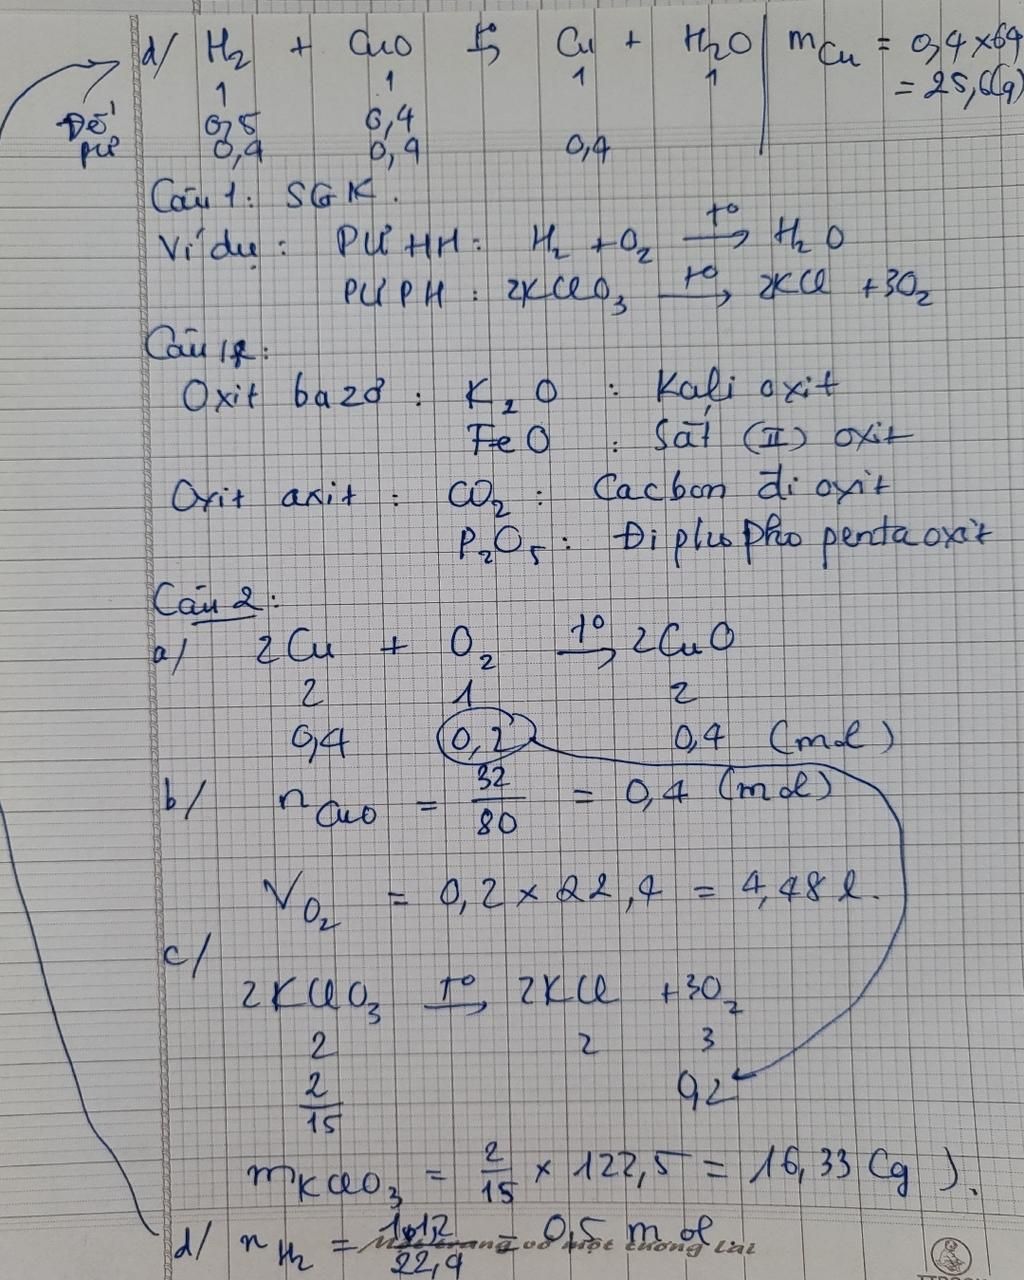 d/ H₂ + CuO t° Cu + H₂O | mCu = 0,4 x 64
1 1 1 1 = 25,6 (g)
Đề 0,5 0,4
pứ 0,4 0,4 0,4
Câu 1: SGK.
Ví dụ: PƯHH: H₂ + O₂ t°→ H₂O
PƯPH: 2KClO₃ t°→ 2KCl + 3O₂
Câu 1:
Oxit bazơ: K₂O : Kali oxit
FeO : Sắt (II) oxit
Oxit axit: CO₂ : Cacbon đi oxit
P₂O₅ : Đi phốt pho penta oxit
Câu 2:
a/ 2Cu + O₂ t°→ 2CuO
2 1 2
0,4 0,2 0,4 (mol)
b/ nCuO = 32/80 = 0,4 (mol)
VO₂ = 0,2 x 22,4 = 4,48 l.
c/
2KClO₃ t°→ 2KCl + 3O₂
2 2 3
2/15 0,2
mKClO₃ = 2/15 x 122,5 = 16,33 (g).
d/ nH₂ = 11,2/22,4 = 0,5 mol